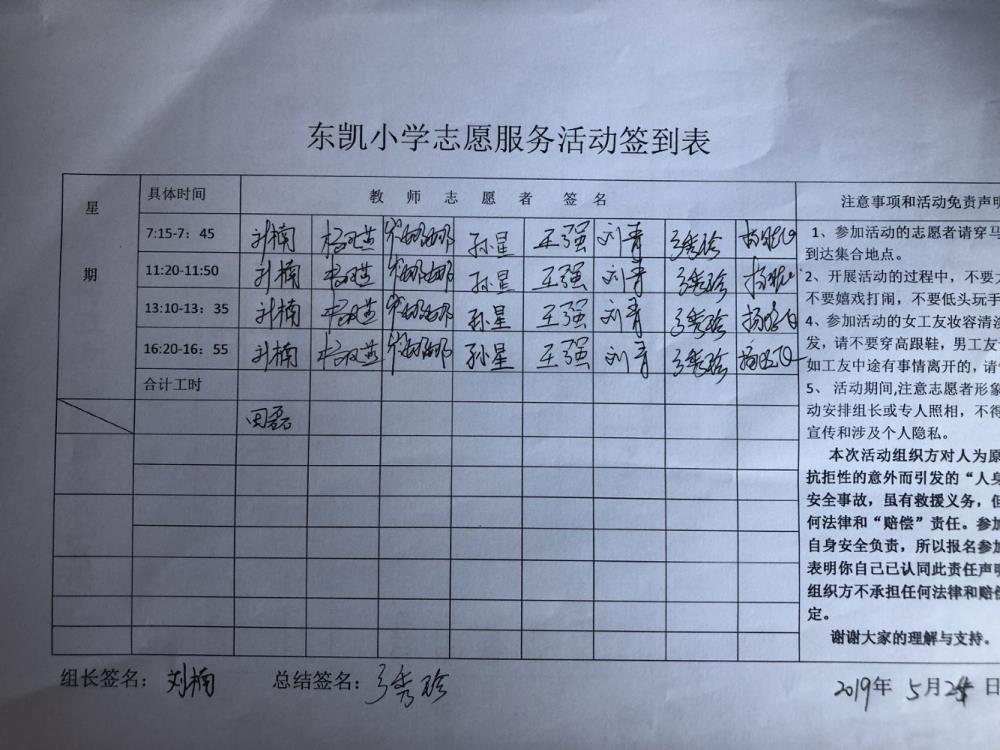 东凯小学志愿服务活动签到表
星期
具体时间 教师志愿者签名 注意事项和活动免责声明
7:15-7：45 刘楠 孙星 王强 刘青
11:20-11:50 刘楠 孙星 王强 刘青
13:10-13：35 刘楠 孙星 王强 刘青
16:20-16：55 刘楠 孙星 王强 刘青
合计工时
田磊
1、参加活动的志愿者请穿马
到达集合地点。
2、开展活动的过程中，不要
不要嬉戏打闹，不要低头玩手
4、参加活动的女工友妆容清淡
发，请不要穿高跟鞋，男工友
如工友中途有事情离开的，请
5、 活动期间,注意志愿者形象
动安排组长或专人照相，不得
宣传和涉及个人隐私。
本次活动组织方对人为原
抗拒性的意外而引发的“人身
安全事故，虽有救援义务，但
何法律和“赔偿”责任。参加
自身安全负责，所以报名参加
表明你自己已认同此责任声明
组织方不承担任何法律和赔偿
定。
谢谢大家的理解与支持。
组长签名：刘楠 总结签名： 2019年 5月 日